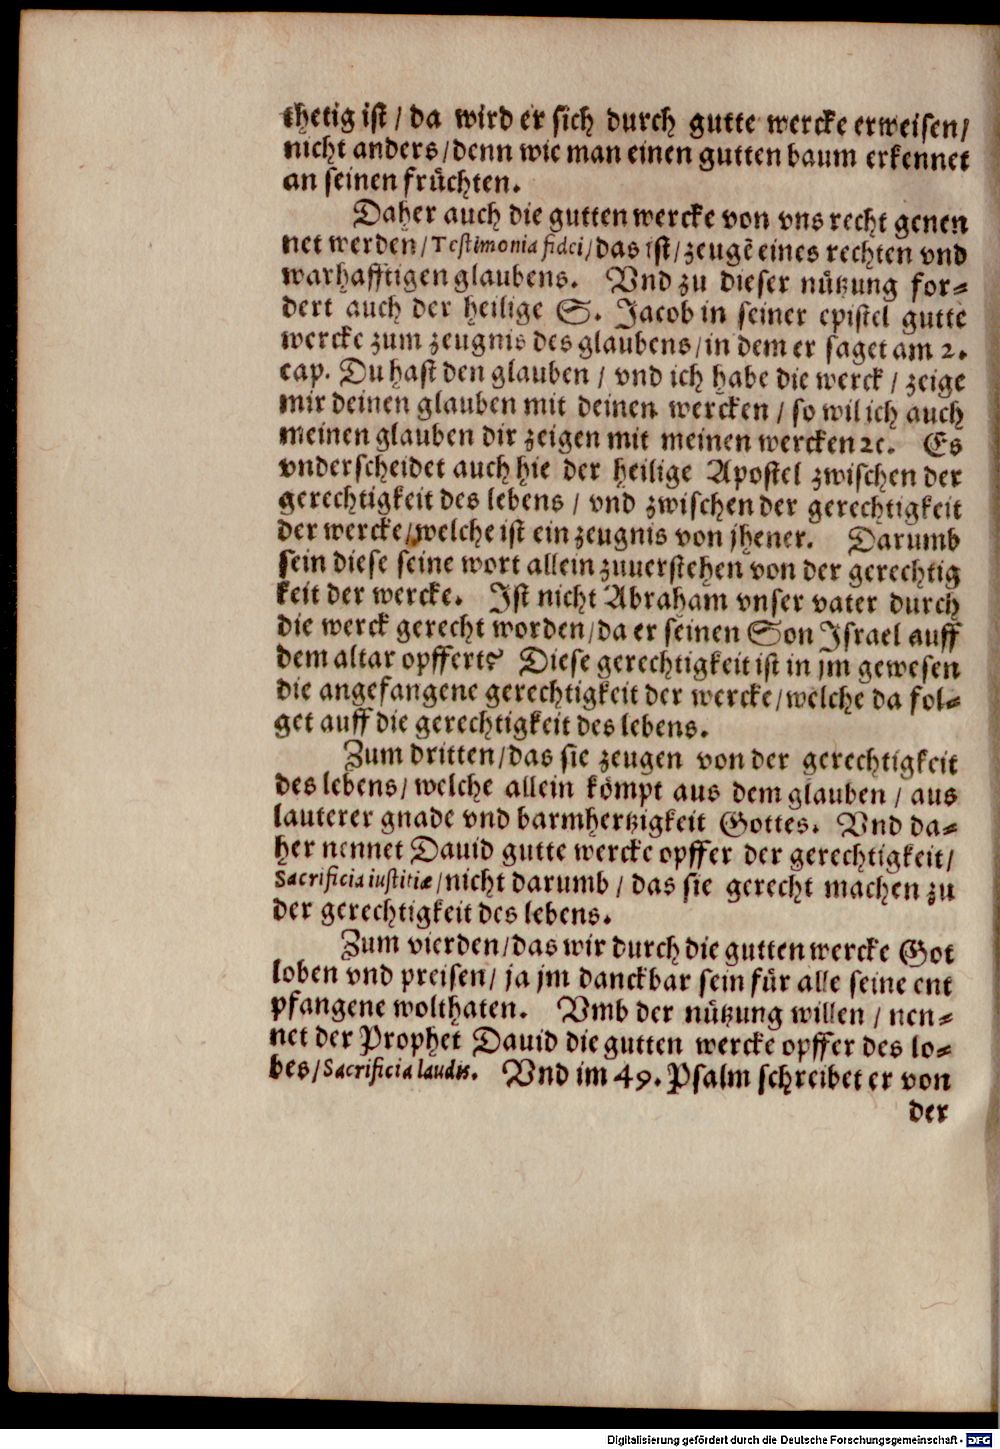 thetig ist / da wird er sich durch gutte wercke erweisen /
nicht anders / denn wie man einen gutten baum erkennet
an seinen früchten.
Daher auch die gutten wercke von vns recht genen
net werden / Testimonia fidei / das ist / zeugẽ eines rechten vnd
warhafftigen glaubens. Vnd zu dieser nützung for⸗
dert auch der heilige S. Jacob in seiner epistel gutte
wercke zum zeugnis des glaubens / in dem er saget am 2.
cap. Du hast den glauben / vnd ich habe die werck / zeige
mir deinen glauben mit deinen wercken / so wil ich auch
meinen glauben dir zeigen mit meinen wercken ꝛc. Es
vnderscheidet auch hie der heilige Apostel zwischen der
gerechtigkeit des lebens / vnd zwischen der gerechtigkeit
der wercke / welche ist ein zeugnis von jhener. Darumb
sein diese seine wort allein zuuerstehen von der gerechtig
keit der wercke. Ist nicht Abraham vnser vater durch
die werck gerecht worden / da er seinen Son Israel auff
dem altar opffert? Diese gerechtigkeit ist in jm gewesen
die angefangene gerechtigkeit der wercke / welche da fol⸗
get auff die gerechtigkeit des lebens.
Zum dritten / das sie zeugen von der gerechtigkeit
des lebens / welche allein kömpt aus dem glauben / aus
lauterer gnade vnd barmhertzigkeit Gottes. Vnd da⸗
her nennet Dauid gutte wercke opffer der gerechtigkeit /
Sacrificia iustitiæ / nicht darumb / das sie gerecht machen zu
der gerechtigkeit des lebens.
Zum vierden / das wir durch die gutten wercke Got
loben vnd preisen / ja jm danckbar sein für alle seine ent
pfangene wolthaten. Vmb der nützung willen / nen⸗
net der Prophet Dauid die gutten wercke opffer des lo⸗
bes / Sacrificia laudis. Vnd im 49. Psalm schreibet er von
der
Digitalisierung gefördert durch die Deutsche Forschungsgemeinschaft - DFG